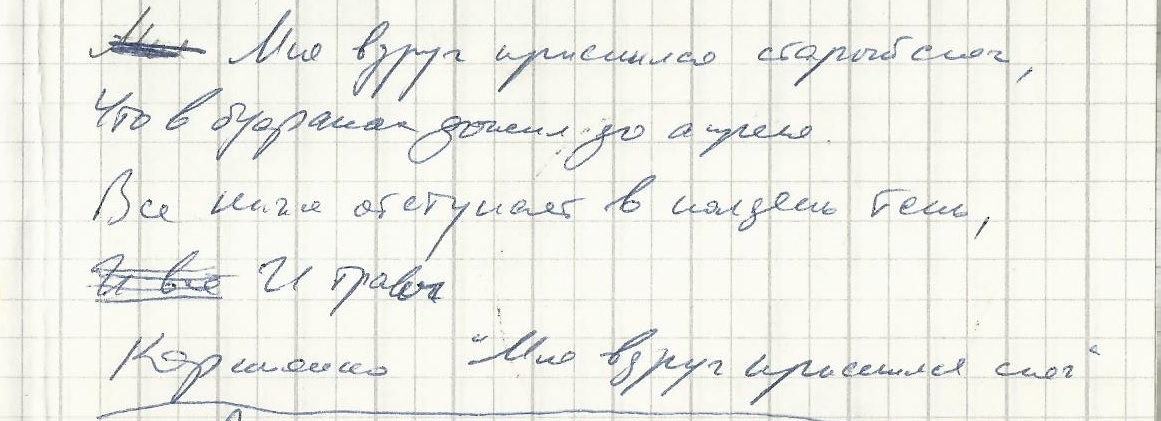 Мне вдруг приснился старый снег,
Что в оврагах дожил до апреля.
Все ниже отступает в полдень тень,
И все И травы
"Мне вдруг приснился снег"